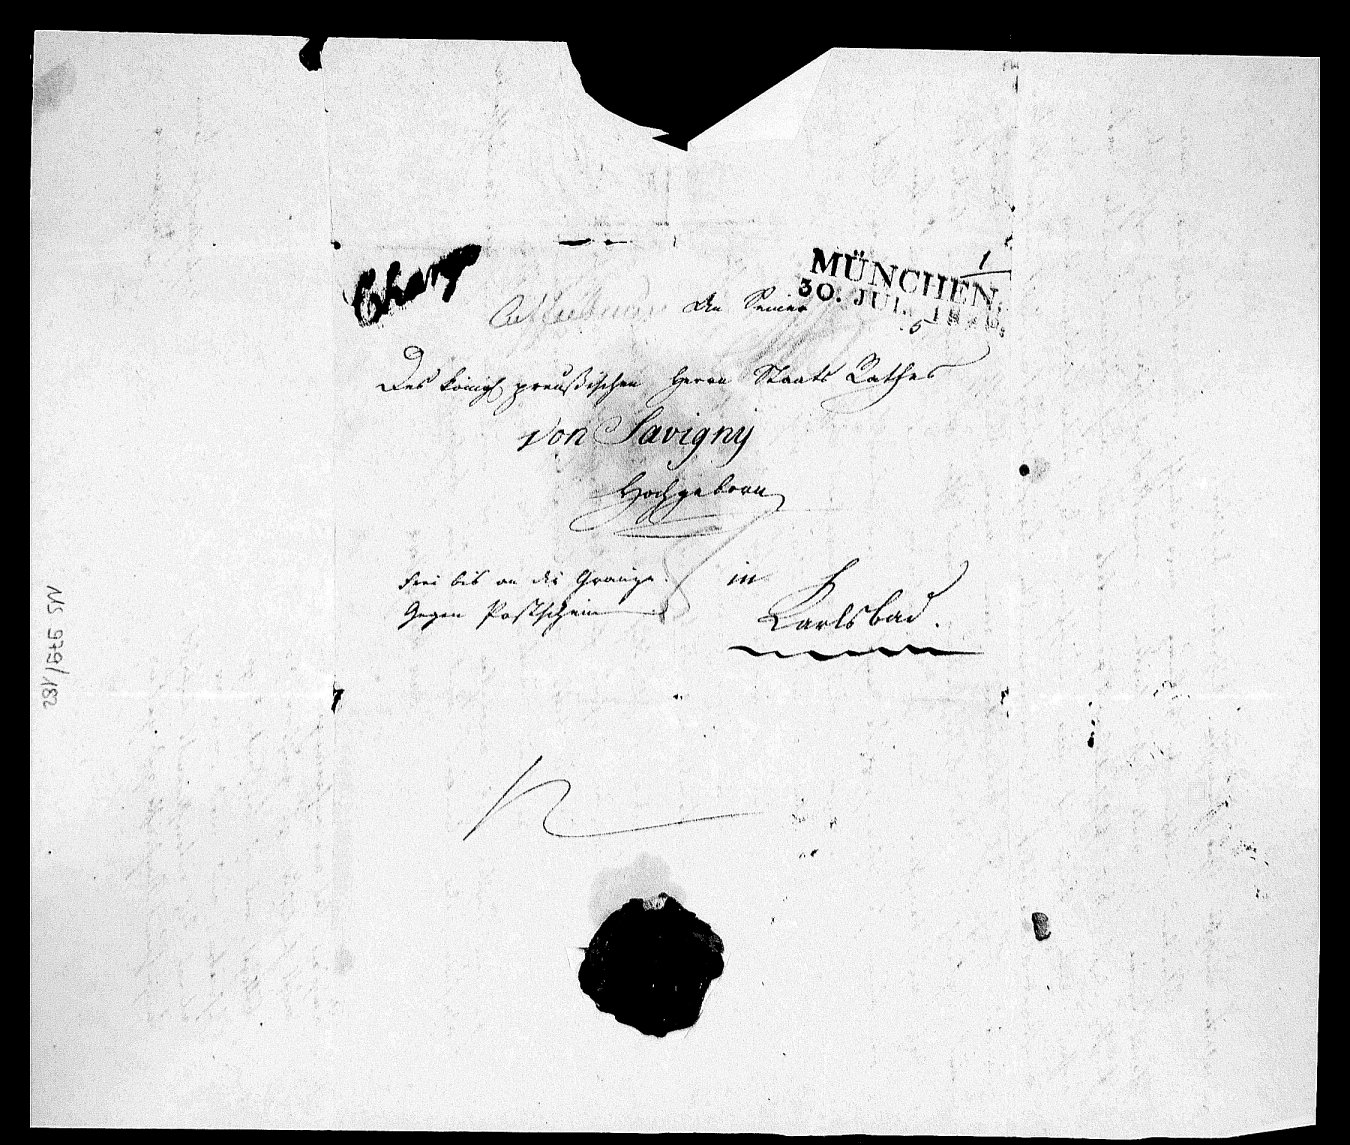 Chargé
MÜNCHEN,
30. JUL. 18
An Seiner
Des königl. preußischen Herrn Staats Rathes
von Savigny
Hochgeborn
frei bis an die Gränze.
gegen Postschein
in
Karlsbad.
MS 979/185